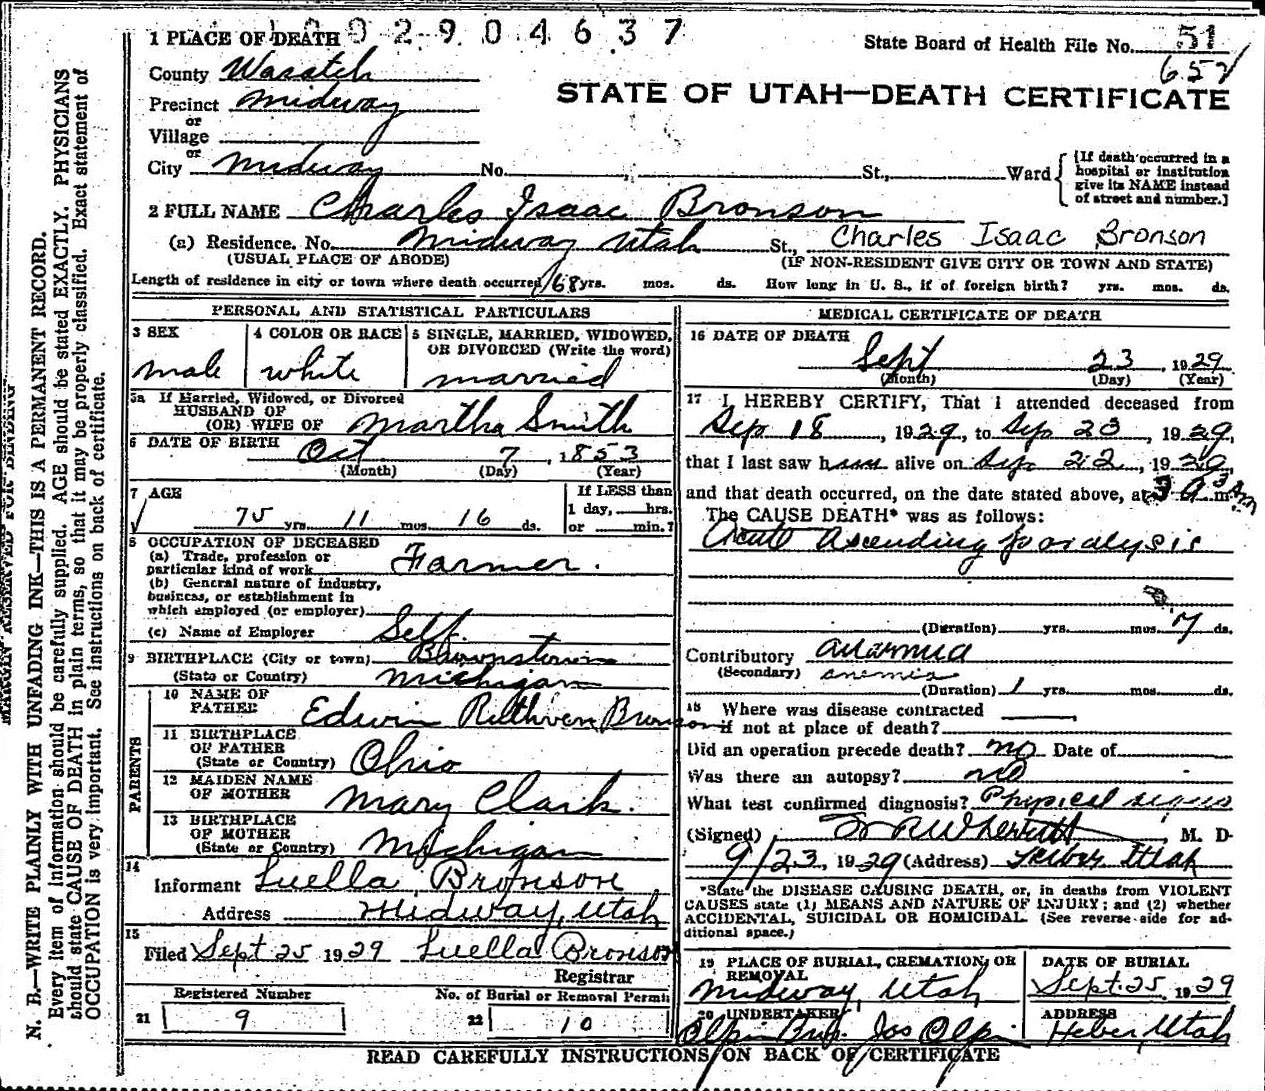 1 PLACE OF DEATH 1 0 0 2 9 0 4 6 3 7
State Board of Health File No. 51
652
County Wasatch
STATE OF UTAH—DEATH CERTIFICATE
Precinct Midway
or
Village
or
City Midway No. St., Ward
[If death occurred in a
hospital or institution
give its NAME instead
of street and number.]
2 FULL NAME Charles Isaac Bronson
(a) Residence. No. Midway Utah St., Charles Isaac Bronson
(USUAL PLACE OF ABODE) (IF NON-RESIDENT GIVE CITY OR TOWN AND STATE)
Length of residence in city or town where death occurred 68 yrs. mos. ds. How long in U. S., if of foreign birth? yrs. mos. ds.
PERSONAL AND STATISTICAL PARTICULARS
3 SEX 4 COLOR OR RACE 5 SINGLE, MARRIED, WIDOWED,
OR DIVORCED (Write the word)
male white married
5a If Married, Widowed, or Divorced
HUSBAND OF
(OR) WIFE OF Martha Smith
6 DATE OF BIRTH Oct 7, 1853
(Month) (Day) (Year)
7 AGE If LESS than
1 day, hrs.
75 yrs. 11 mos. 16 ds. or min.?
8 OCCUPATION OF DECEASED
(a) Trade, profession or
particular kind of work Farmer.
(b) General nature of industry,
business, or establishment in
which employed (or employer)
(c) Name of Employer Self.
9 BIRTHPLACE (City or town) Brownstown
(State or Country) Michigan
PARENTS
10 NAME OF
FATHER Edwin Ruthven Bronson
11 BIRTHPLACE
OF FATHER
(State or Country) Ohio
12 MAIDEN NAME
OF MOTHER Mary Clark.
13 BIRTHPLACE
OF MOTHER
(State or Country) Michigan
14
Informant Luella Bronson
Address Midway, Utah
15
Filed Sept 25 1929 Luella Bronson
Registrar
Registered Number No. of Burial or Removal Permit
21 9 22 10
MEDICAL CERTIFICATE OF DEATH
16 DATE OF DEATH
Sept 23, 1929
(Month) (Day) (Year)
17 I HEREBY CERTIFY, That I attended deceased from
Sep 18, 1929, to Sep 23, 1929,
that I last saw him alive on Sep 22, 1929,
and that death occurred, on the date stated above, at 3 A m. 3 AM
The CAUSE DEATH* was as follows:
Acute Ascending paralysis
(Duration) yrs. mos. 7 ds.
Contributory anaemia
(Secondary) anemia
(Duration) 1 yrs. mos. ds.
18 Where was disease contracted
if not at place of death?
Did an operation precede death? no Date of
Was there an autopsy? no
What test confirmed diagnosis? Physical signs
(Signed) M. D.
9/23, 1929 (Address) Heber Utah
*State the DISEASE CAUSING DEATH, or, in deaths from VIOLENT
CAUSES state (1) MEANS AND NATURE OF INJURY; and (2) whether
ACCIDENTAL, SUICIDAL OR HOMICIDAL. (See reverse side for ad-
ditional space.)
19 PLACE OF BURIAL, CREMATION, OR
REMOVAL
Midway, Utah
DATE OF BURIAL
Sept. 25, 1929
20 UNDERTAKER
Olpin Bros. Jos Olpin
ADDRESS
Heber, Utah
READ CAREFULLY INSTRUCTIONS ON BACK OF CERTIFICATE
MARGIN RESERVED FOR BINDING
N. B.—WRITE PLAINLY WITH UNFADING INK—THIS IS A PERMANENT RECORD.
Every item of information should be carefully supplied. AGE should be stated EXACTLY. PHYSICIANS
should state CAUSE OF DEATH in plain terms, so that it may be properly classified. Exact statement of
OCCUPATION is very important. See instructions on back of certificate.